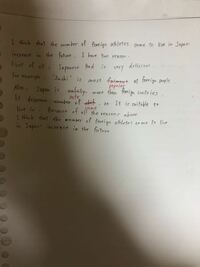 I think that the number of foreign athletes come to live in Japan
increase in the future. I have two reason.
First of all, Japanese food is very delicious.
For example, "Sushi" is most popular of foreign people
Also, Japan is safety more than foreign countries.
safe
It decrease number of crime, so It is suitable to
live in. Because of all the reasons above
I think that the number of foreign athletes come to live
in Japan increase in the future